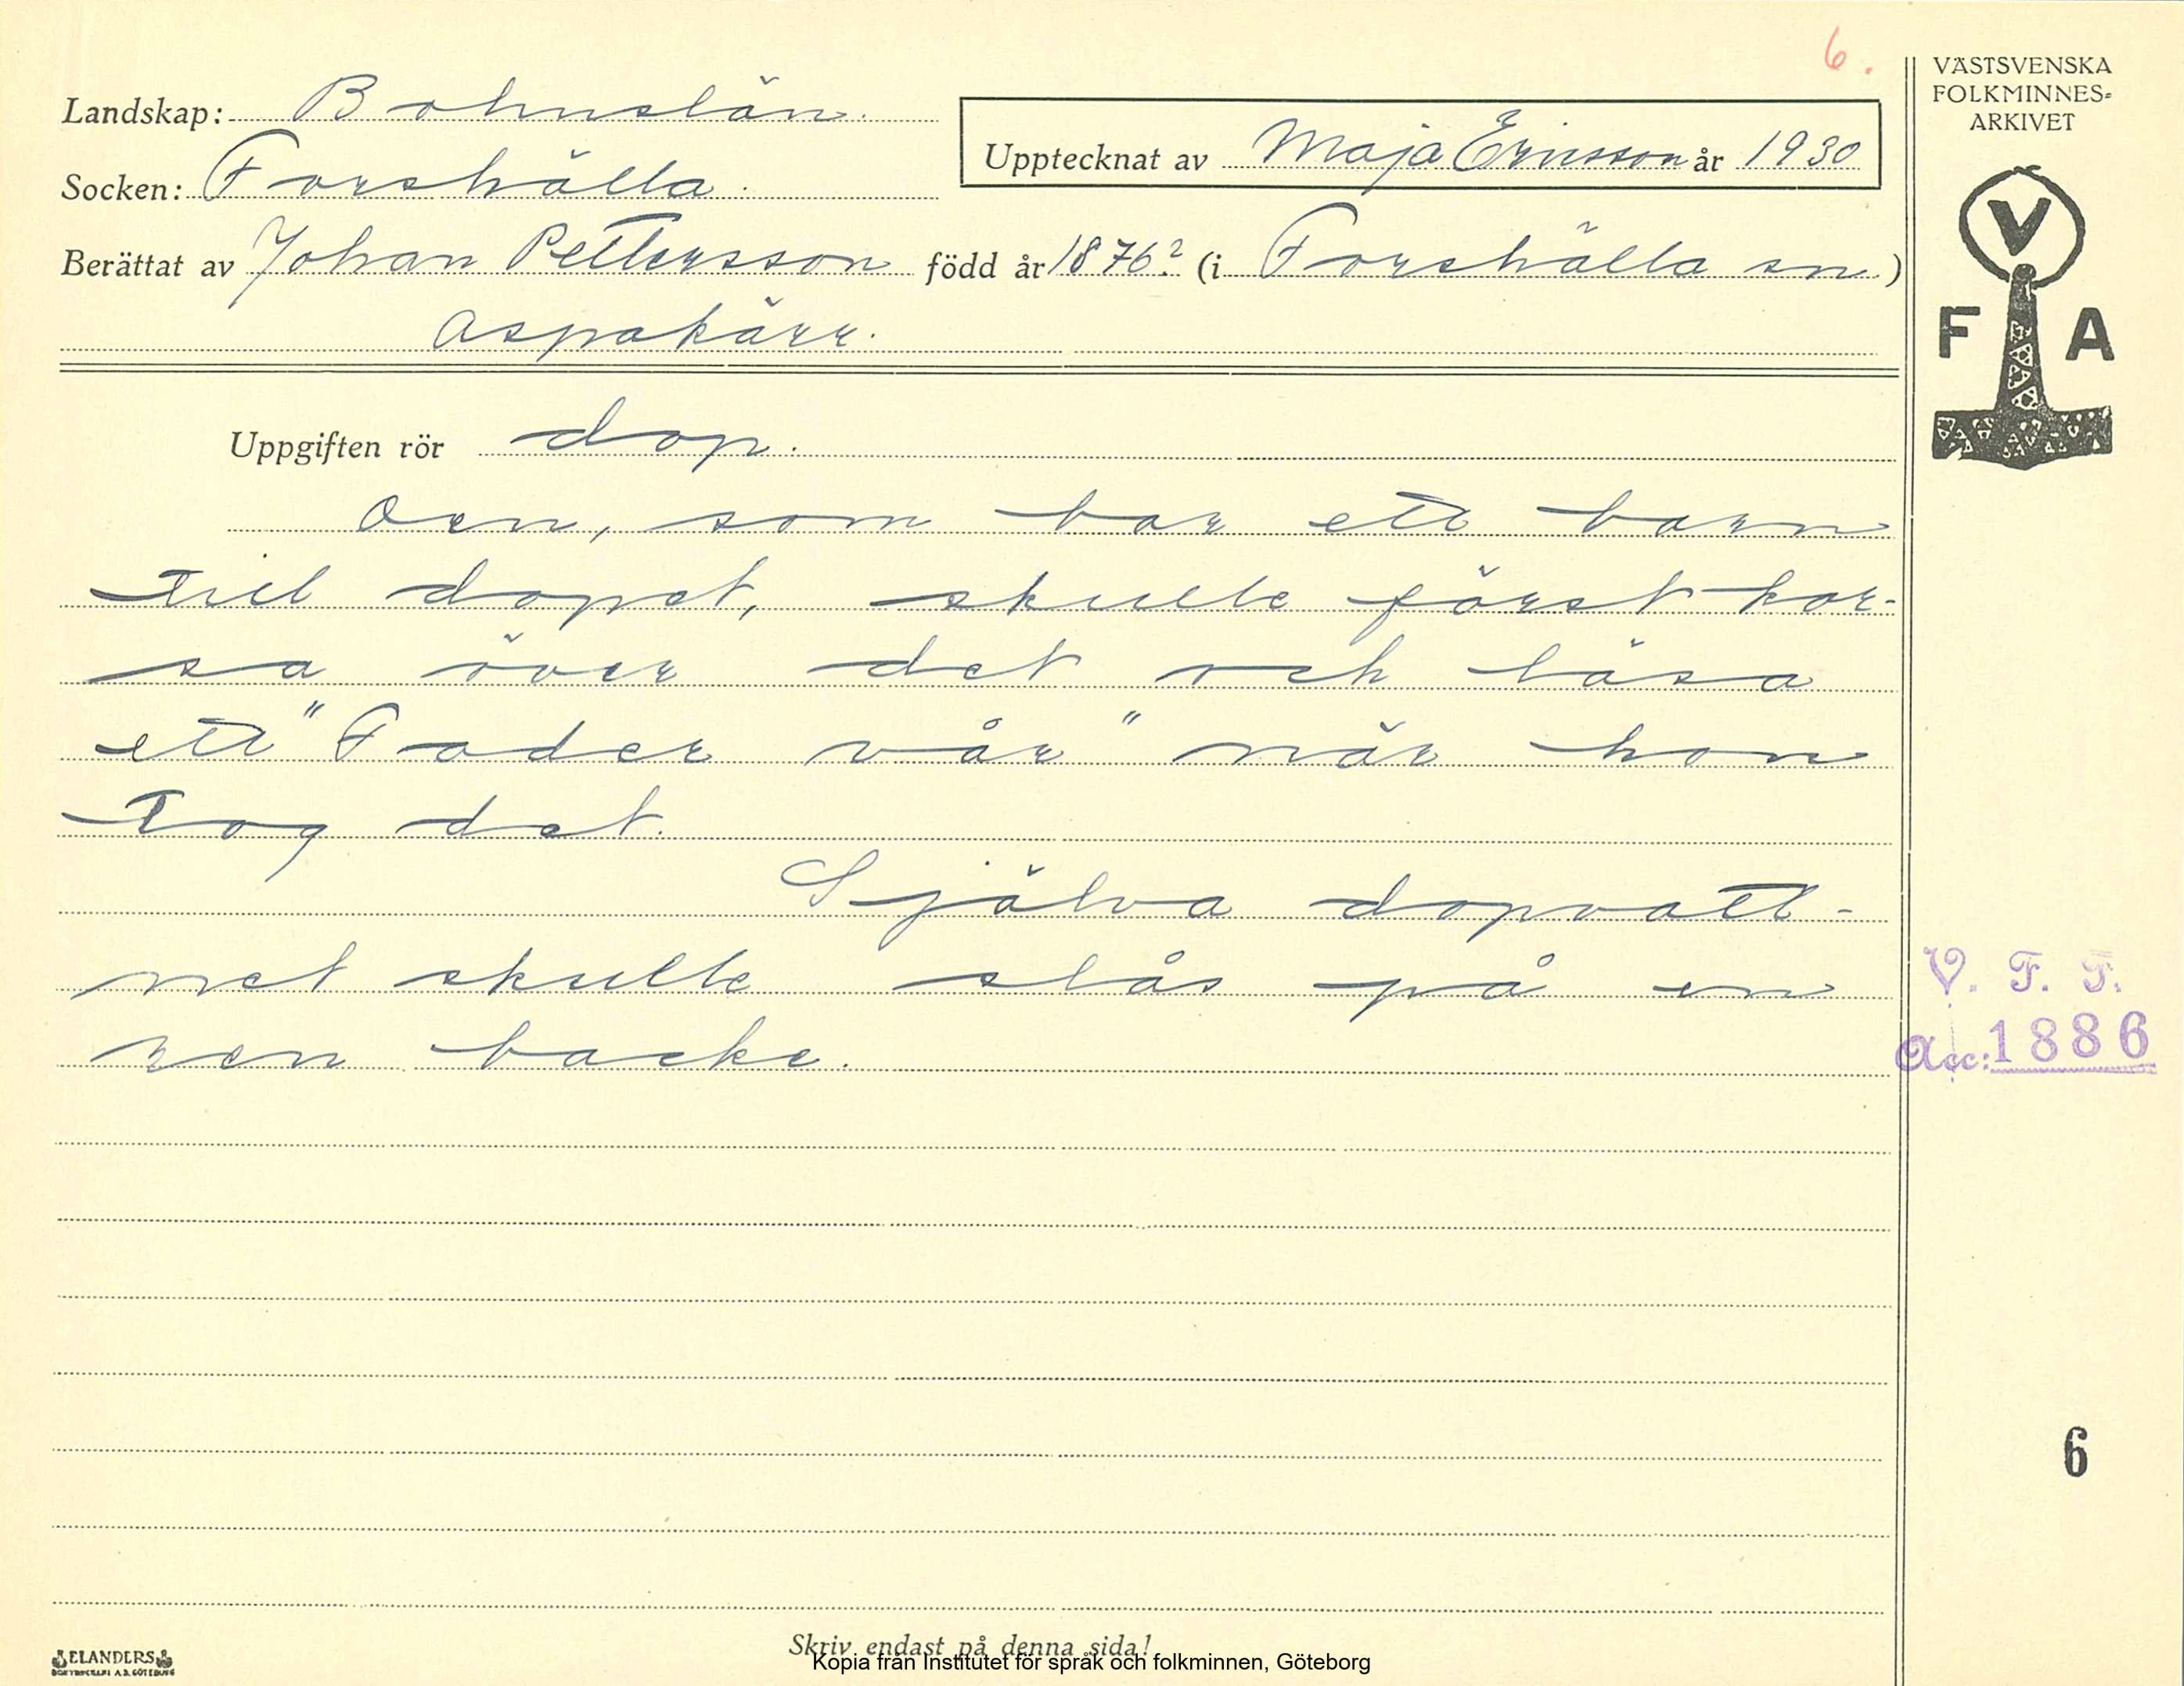 6.
VÄSTSVENSKA
FOLKMINNES-
ARKIVET
Landskap: Bohuslän.
Upptecknat av Maja Ericsson år 1930
Socken: Forshälla.
Berättat av Johan Pettersson född år 1876? (i Forshälla sn.)
Aspakärr.
V
F A
Uppgiften rör dop.
Den, som bar ett barn
till dopet, skulle först kor-
sa över det och läsa
ett "Fader vår" när hon
tog det.
Själva dopvatt-
net skulle slås på en
ren backe.
V. F. F.
Acc: 1886
6
Skriv endast på denna sida!
ELANDERS
BOKTRYCKERI A.B. GÖTEBORG
Kopia från Institutet för språk och folkminnen, Göteborg